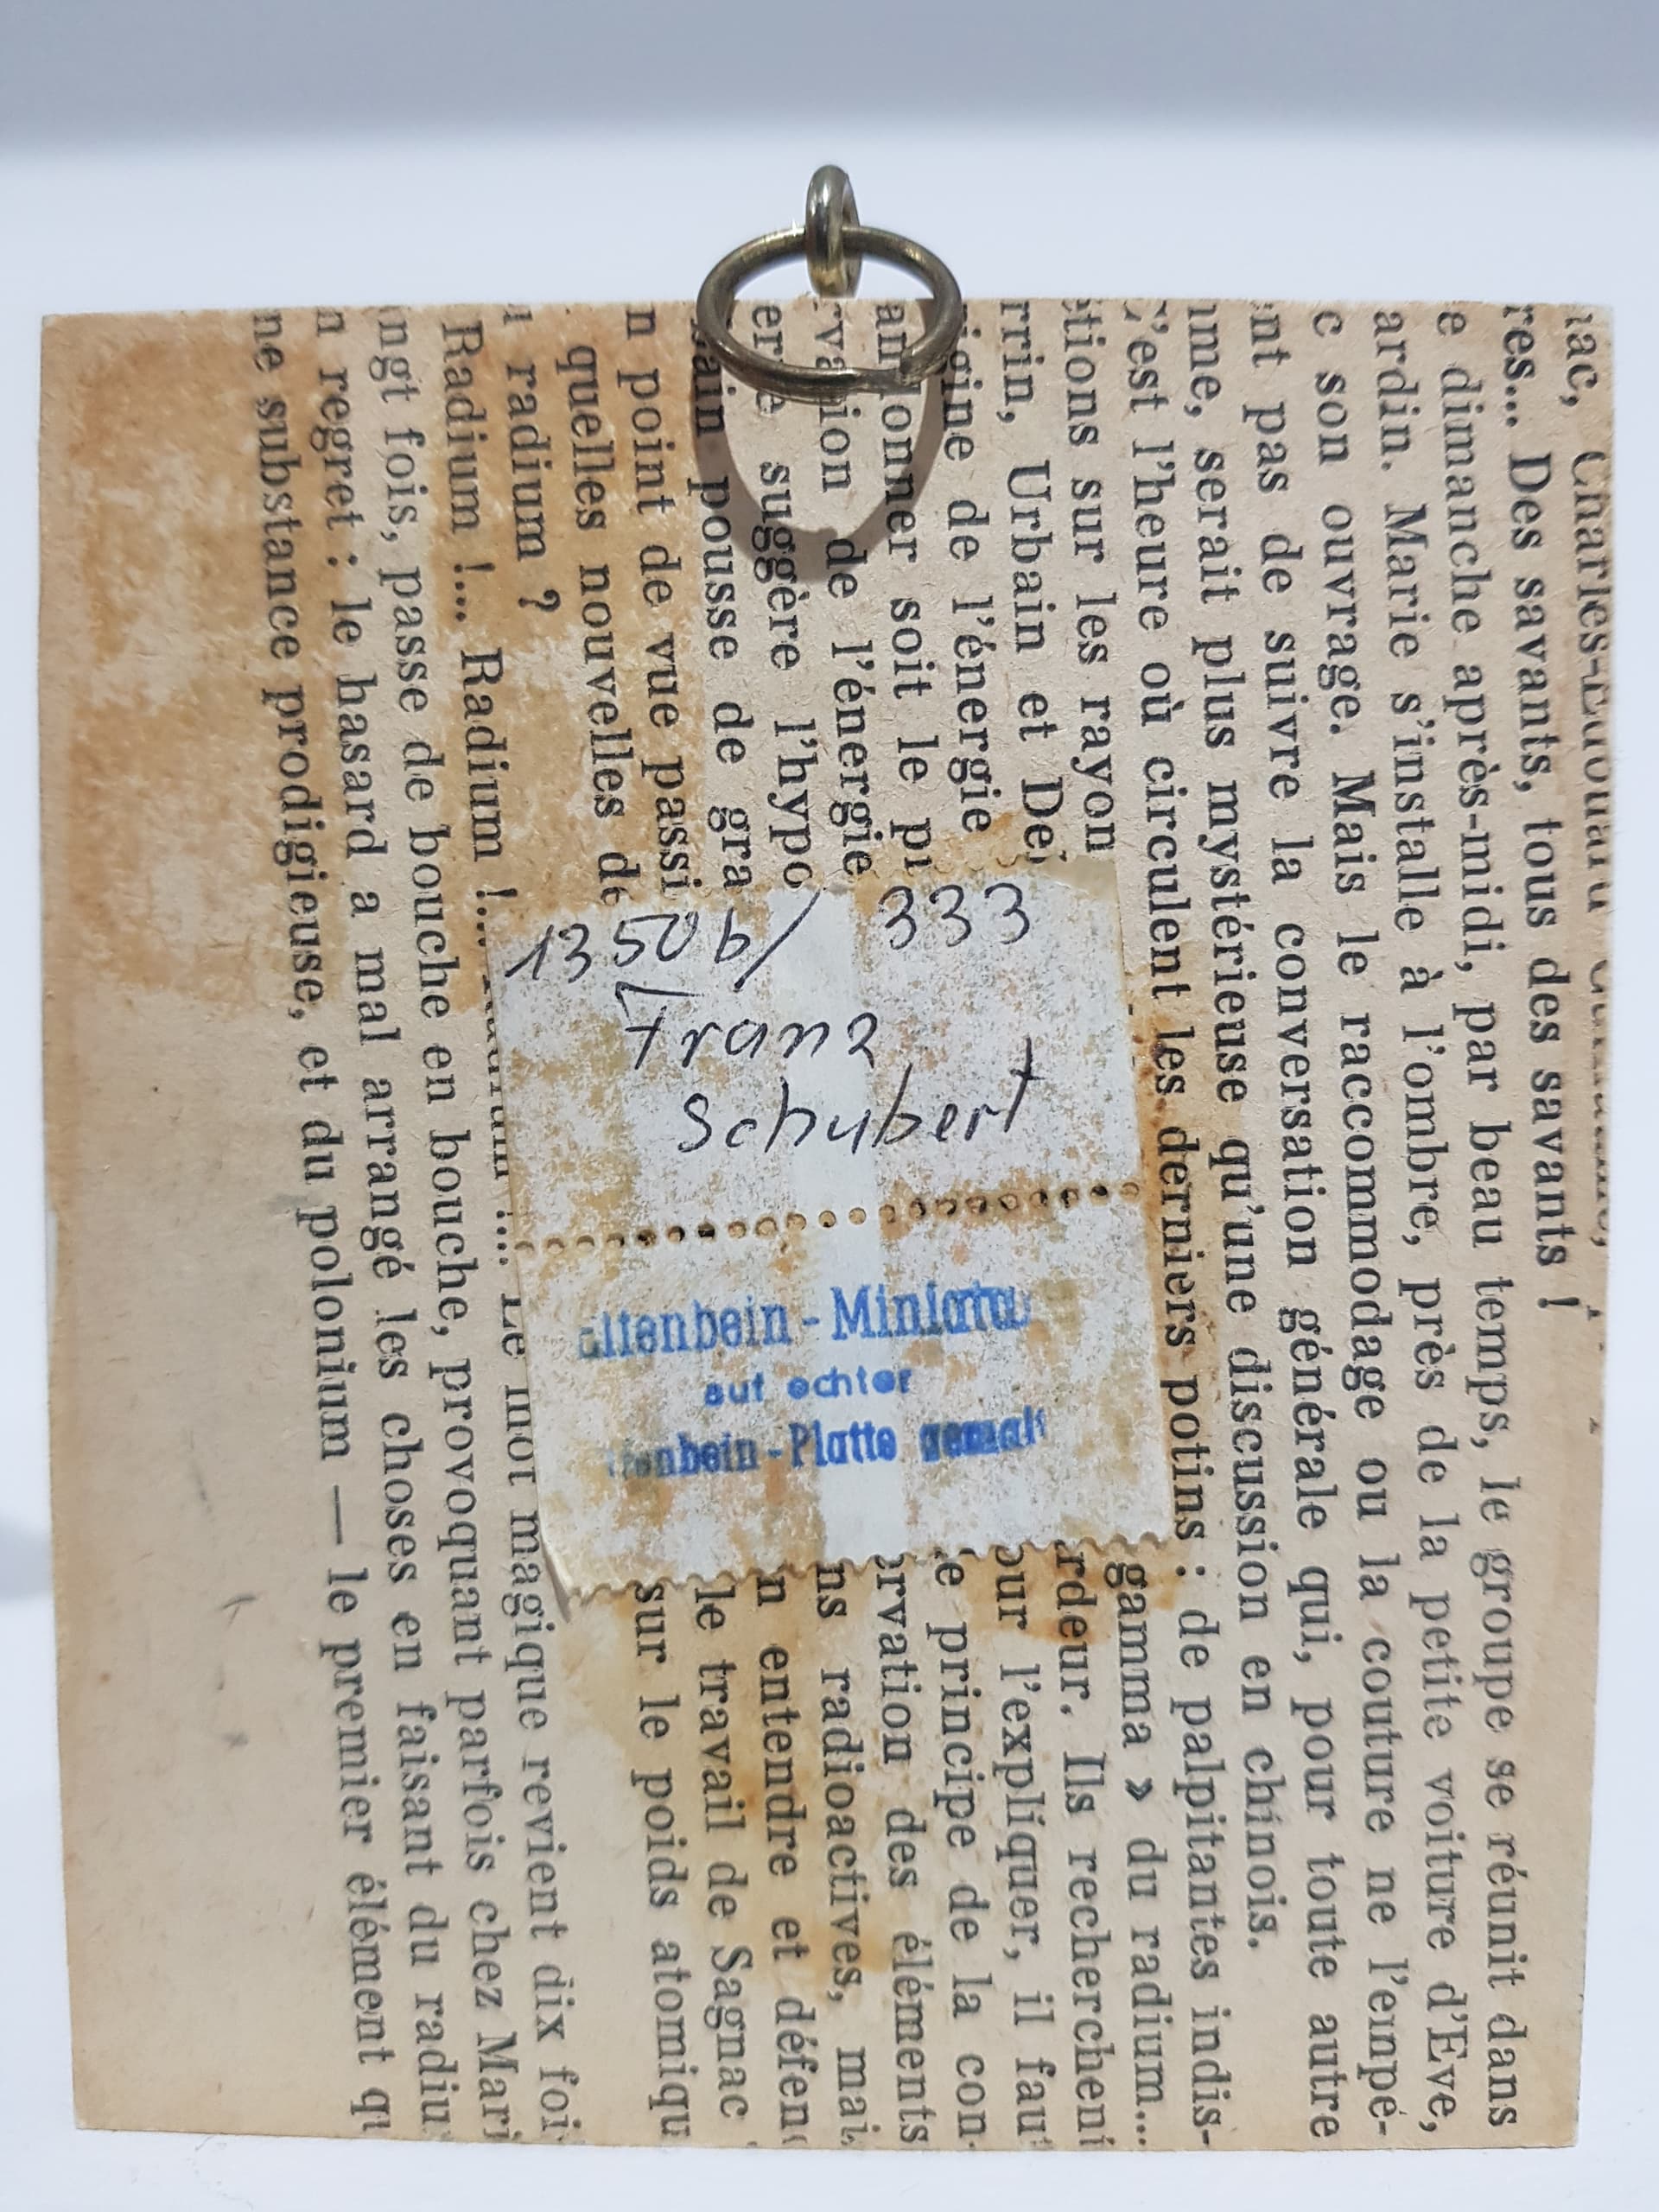 res... Des savants, tous des savants !
e dimanche après-midi, par beau temps, le groupe se réunit dans
ardin. Marie s'installe à l'ombre, près de la petite voiture d'Eve,
c son ouvrage. Mais le raccommodage ou la couture ne l'empê-
nt pas de suivre la conversation générale qui, pour toute autre
me, serait plus mystérieuse qu'une discussion en chinois.
C'est l'heure où circulent les derniers potins : de palpitantes indis-
tions sur les rayon gamma » du radium...
rrin, Urbain et De rdeur. Ils recherchent
igine de l'énergie our l'expliquer, il faut
donner soit le pr e principe de la con-
rvation de l'énergie ervation des éléments
suggère l'hypo ns radioactives, mais
ain pousse de gra n entendre et défend
n point de vue passi le travail de Sagnac
quelles nouvelles de sur le poids atomiqu
radium ?
Radium !... Radium !... Le mot magique revient dix foi
ngt fois, passe de bouche en bouche, provoquant parfois chez Mari
n regret : le hasard a mal arrangé les choses en faisant du radiu
ne substance prodigieuse, et du polonium — le premier élément qu
13506/333
Franz
Schubert
lfenbein-Miniatu
auf echter
fenbein-Platte gemalt